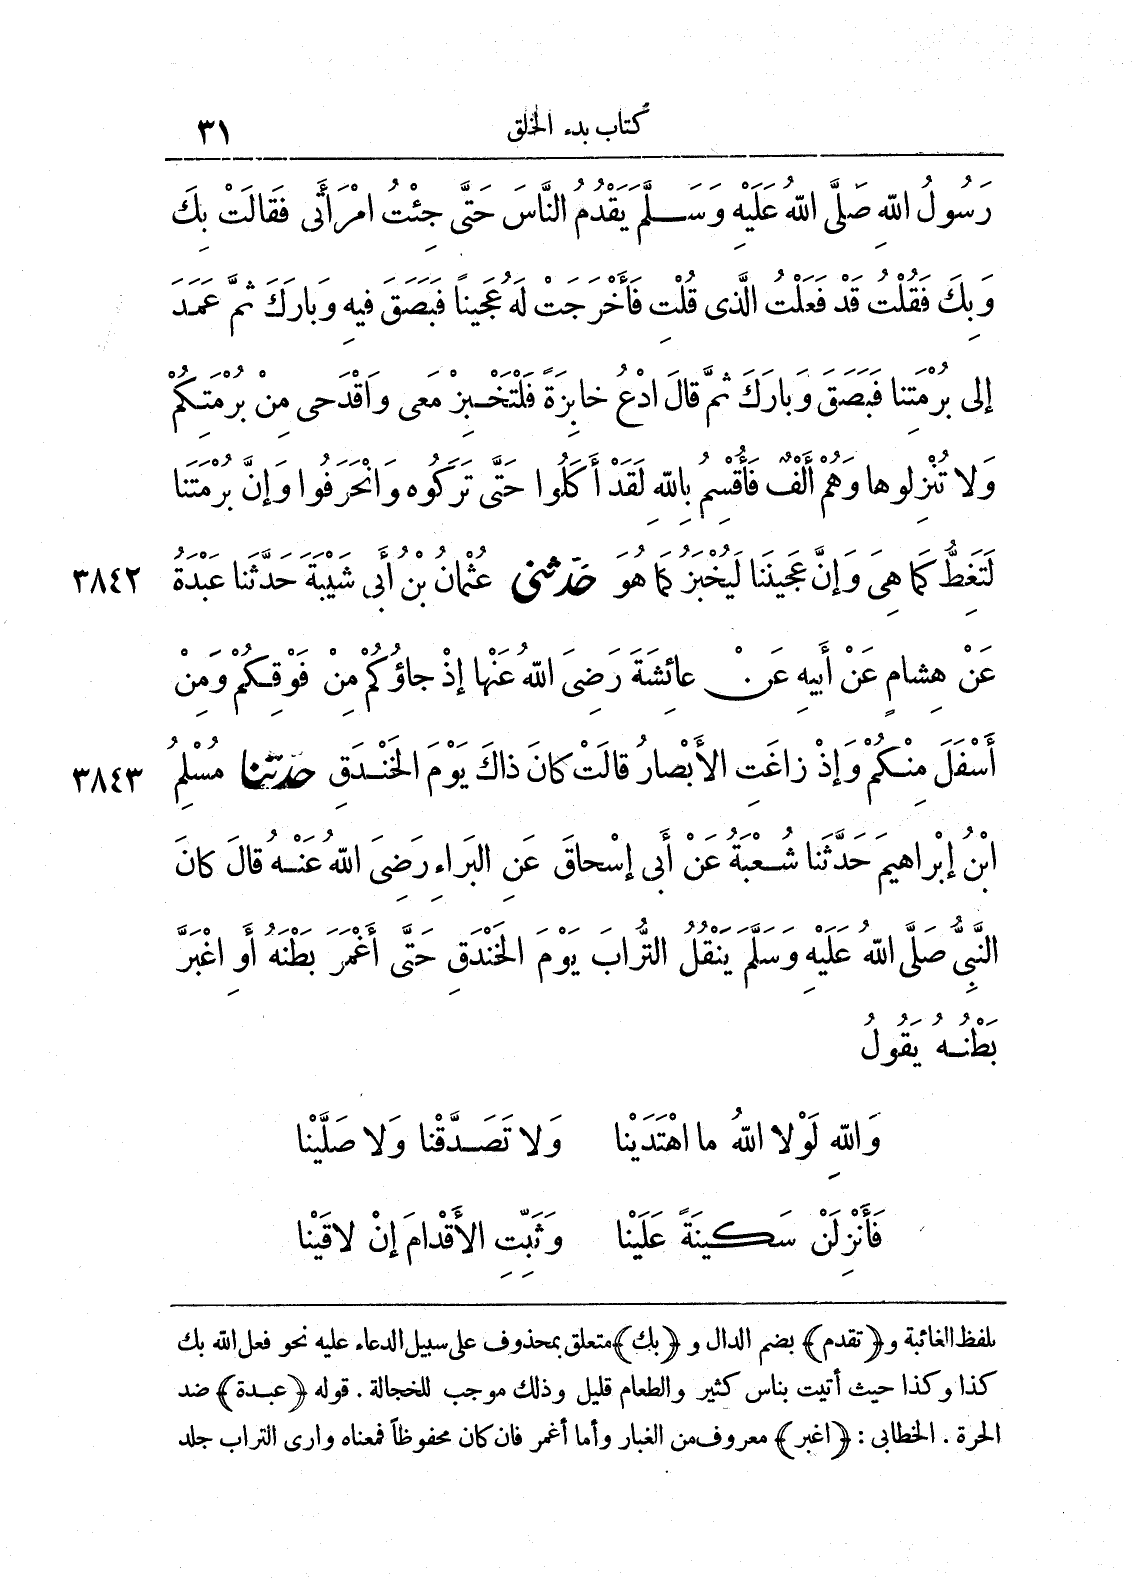 كتاب بدء الخلق ٣١
رَسُولُ اللهِ صَلَّى اللهُ عَلَيْهِ وَسَلَّمَ يَقْدُمُ النَّاسَ حَتَّى جِئْتُ امْرَأَتِى فَقَالَتْ بِكَ
وَبِكَ فَقُلْتُ قَدْ فَعَلْتُ الَّذِى قُلْتِ فَأَخْرَجَتْ لَهُ عَجِينًا فَبَصَقَ فِيهِ وَبَارَكَ ثُمَّ عَمَدَ
إلى بُرْمَتِنَا فَبَصَقَ وَبارَكَ ثُمَّ قالَ ادْعُ خابِزَةً فَلْتَخْبِزْ مَعِى واقْدَحِى مِنْ بُرْمَتِكُمْ
وَلا تُنْزِلوها وَهُمْ أَلْفٌ فَأُقْسِمُ بِاللهِ لَقَدْ أَكَلُوا حَتَّى تَرَكُوه وَانْحَرَفُوا وَإنَّ بُرْمَتَنَا
لَتَغِطُّ كَمَا هِىَ وَإنَّ عَجِينَنَا لَيُخْبَزُ كَمَا هُوَ حَدّثنى عُثْمانُ بْنُ أَبِى شَيْبَةَ حَدَّثَنا عَبْدَةُ ٣٨٤٢
عَنْ هِشامٍ عَنْ أَبِيهِ عَنْ عائِشَةَ رَضِىَ اللهُ عَنْها إذْ جاؤُكُمْ مِنْ فَوْقِكُمْ وَمِنْ
أَسْفَلَ مِنْكُمْ وَإذْ زاغَتِ الأَبْصارُ قالَتْ كانَ ذاكَ يَوْمَ الخَنْدَقِ حَدّثنا مُسْلِمُ ٣٨٤٣
ابْنُ إبْراهِيمَ حَدَّثَنا شُعْبَةُ عَنْ أَبِى إسْحاقَ عَنِ البَراءِ رَضِىَ اللهُ عَنْهُ قالَ كانَ
النَّبِىُّ صَلَّى اللهُ عَلَيْهِ وَسَلَّمَ يَنْقُلُ التُّرابَ يَوْمَ الخَنْدَقِ حَتَّى أَغْمَرَ بَطْنَهُ أَوِ اغْبَرَّ
بَطْنُهُ يَقُولُ
وَاللهِ لَوْلا اللهُ ما اهْتَدَيْنا وَلا تَصَدَّقْنا وَلا صَلَّيْنا
فَأَنْزِلَنْ سَكِينَةً عَلَيْنا وَثَبِّتِ الأَقْدامَ إنْ لاقَيْنا
بلفظ الغائبة و ﴿تقدم﴾ بضم الدال و ﴿بك﴾ متعلق بمحذوف على سبيل الدعاء عليه نحو فعل الله بك
كذا وكذا حيث أتيت بناس كثير والطعام قليل وذلك موجب للخجالة . قوله ﴿عبدة﴾ ضد
الحرة . الخطابى : ﴿اغبر﴾ معروف من الغبار وأما أغمر فان كان محفوظاً فمعناه وارى التراب جلد